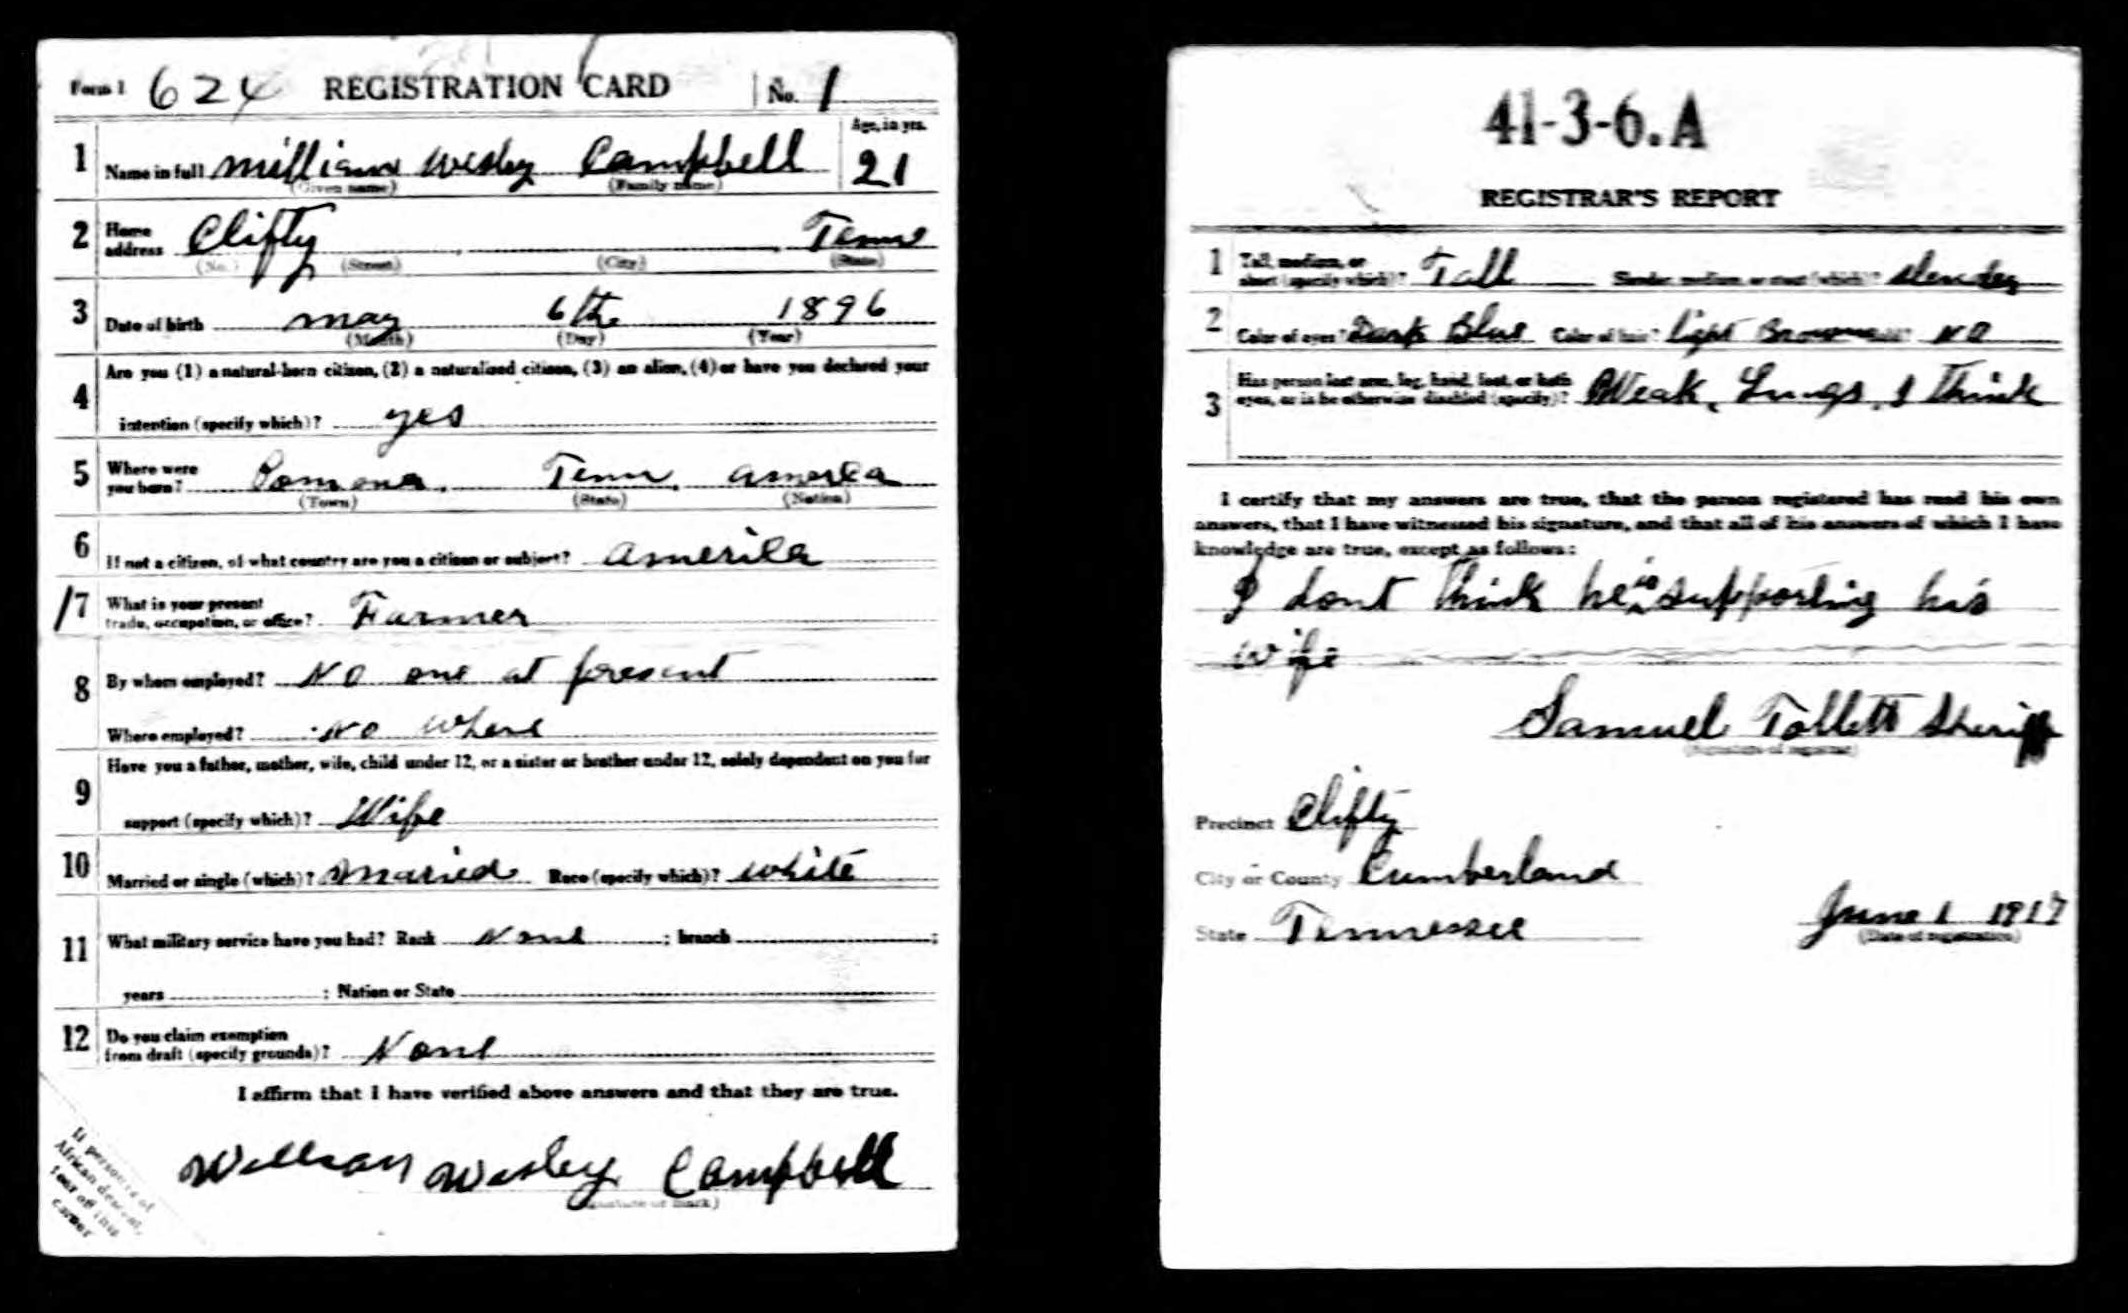 Form 1 624 REGISTRATION CARD No. 1
1 Name in full William Wesley Campbell Age, in yrs. 21
(Given name) (Family name)
2 Home address Clifty Tenn
(No.) (Street) (City) (State)
3 Date of birth may 6th 1896
(Month) (Day) (Year)
4 Are you (1) a natural-born citizen, (2) a naturalized citizen, (3) an alien, (4) or have you declared your
intention (specify which)? yes
5 Where were you born? Pomona, Tenn. America
(Town) (State) (Nation)
6 If not a citizen, of what country are you a citizen or subject? America
/7 What is your present trade, occupation, or office? Farmer
8 By whom employed? No one at present
Where employed? No where
9 Have you a father, mother, wife, child under 12, or a sister or brother under 12, solely dependent on you for
support (specify which)? Wife
10 Married or single (which)? Maried Race (specify which)? white
11 What military service have you had? Rank None ; branch ;
years ; Nation or State
12 Do you claim exemption from draft (specify grounds)? None
I affirm that I have verified above answers and that they are true.
William Wesley Campbell
(Signature or mark)
If person is of
African descent,
tear off this
corner
41-3-6. A
REGISTRAR'S REPORT
1 Tall, medium, or short (specify which)? Tall Slender, medium, or stout (which)? slender
2 Color of eyes? Dark Blue Color of hair? light Brown No
3 Has person lost arm, leg, hand, foot, or both eyes, or is he otherwise disabled (specify)? Weak, Lungs, I think
I certify that my answers are true, that the person registered has read his own
answers, that I have witnessed his signature, and that all of his answers of which I have
knowledge are true, except as follows:
I dont think he is supporting his
wife
Samuel Tollett Sheriff
(Signature of registrar)
Precinct Clifty
City or County Cumberland
State Tennessee June 1 1917
(Date of registration)